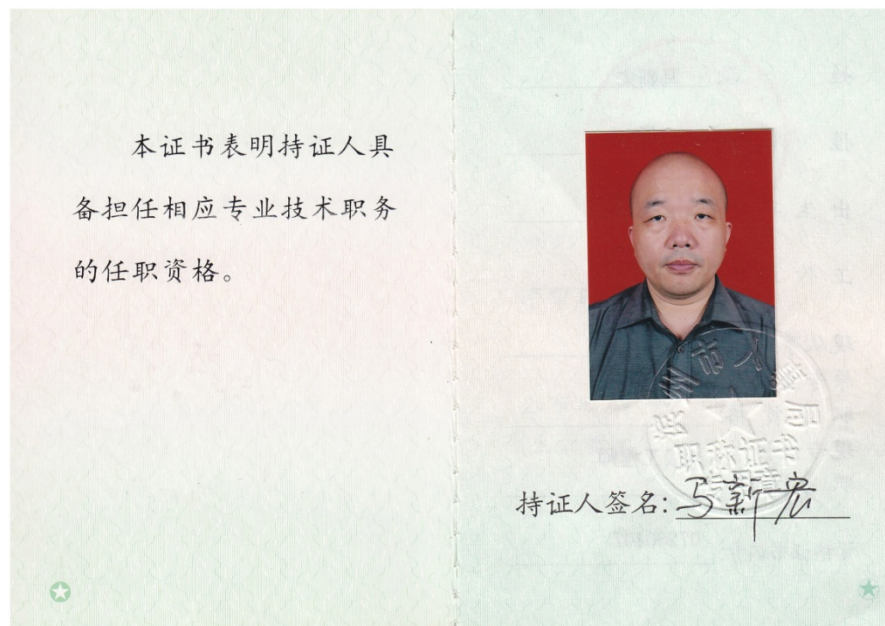 本证书表明持证人具
备担任相应专业技术职务
的任职资格。
市人事局
职称证书
专用章
持证人签名：马新宏